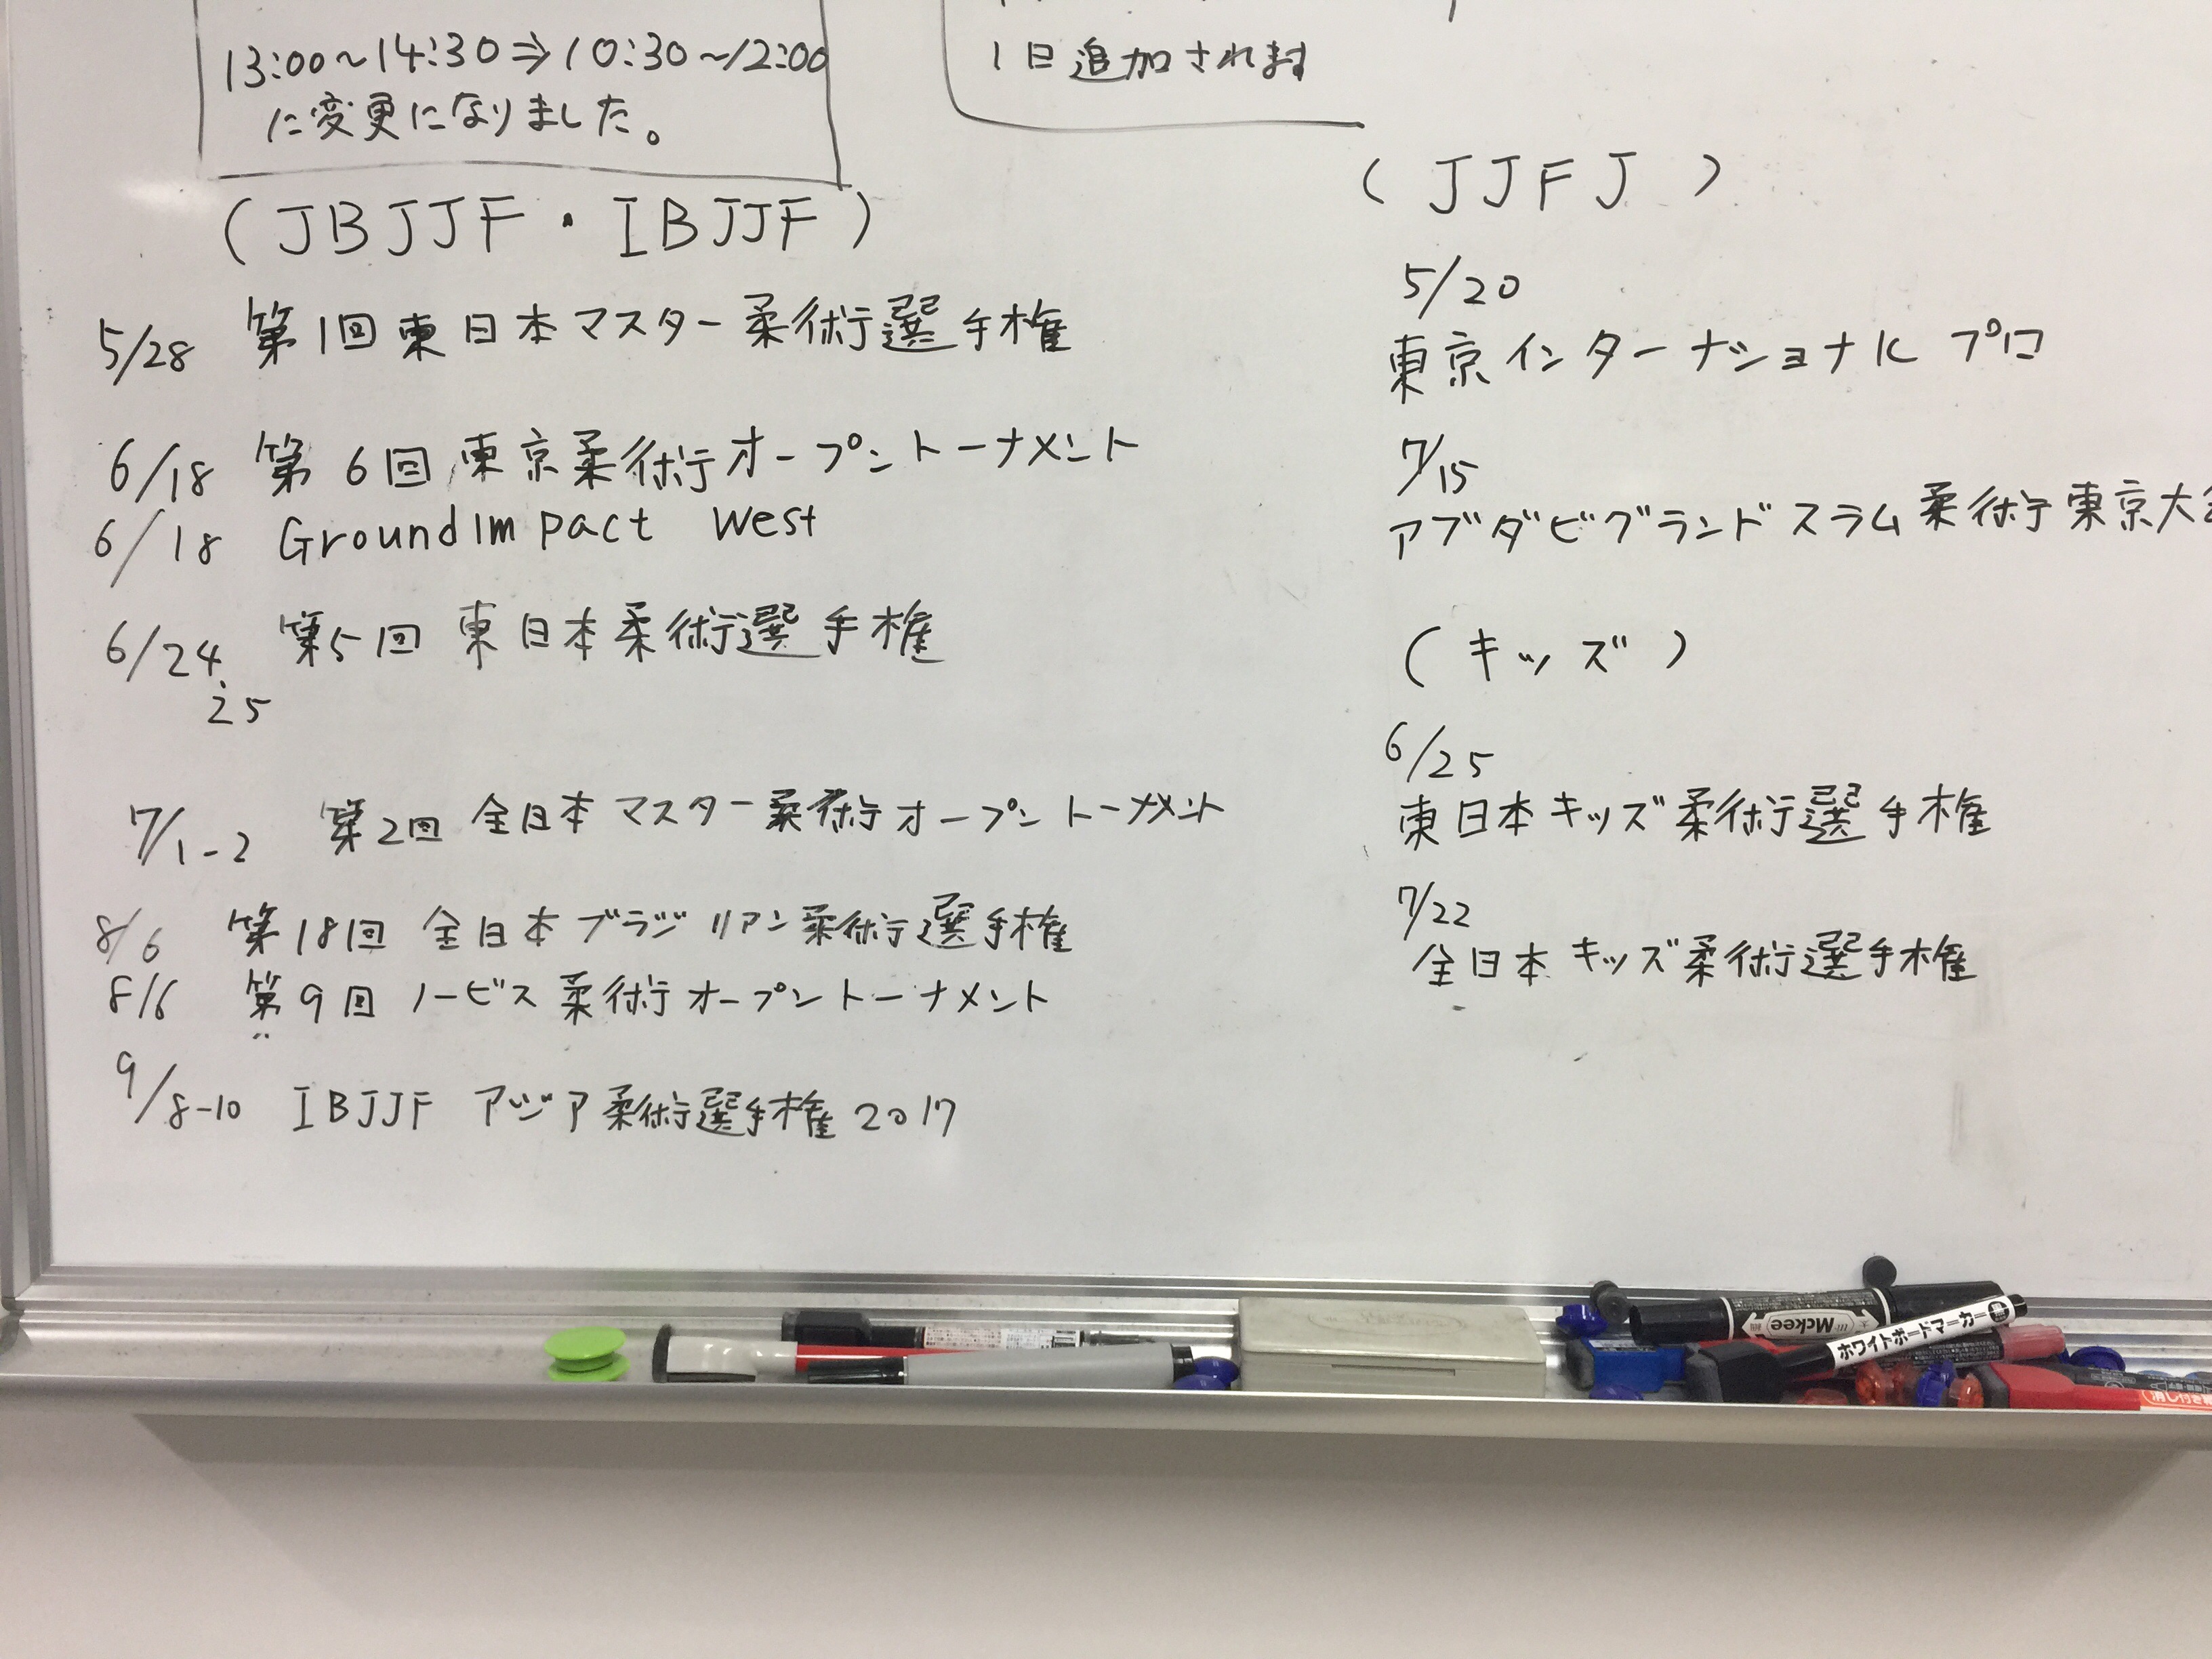 13:00～14:30⇒10:30～12:00
に変更になりました。
1日追加されます
(JBJJF・IBJJF)
5/28 第1回東日本マスター柔術選手権
6/18 第6回東京柔術オープントーナメント
6/18 GroundImpact West
6/24.25 第5回東日本柔術選手権
7/1-2 第2回全日本マスター柔術オープントーナメント
8/6 第18回全日本ブラジリアン柔術選手権
8/6 第9回ノービス柔術オープントーナメント
9/8-10 IBJJF アジア柔術選手権2017
(JJFJ)
5/20
東京インターナショナル プロ
7/15
アブダビグランドスラム柔術東京大会
(キッズ)
6/25
東日本キッズ柔術選手権
7/22
全日本キッズ柔術選手権
Mckee
ホワイトボードマーカー